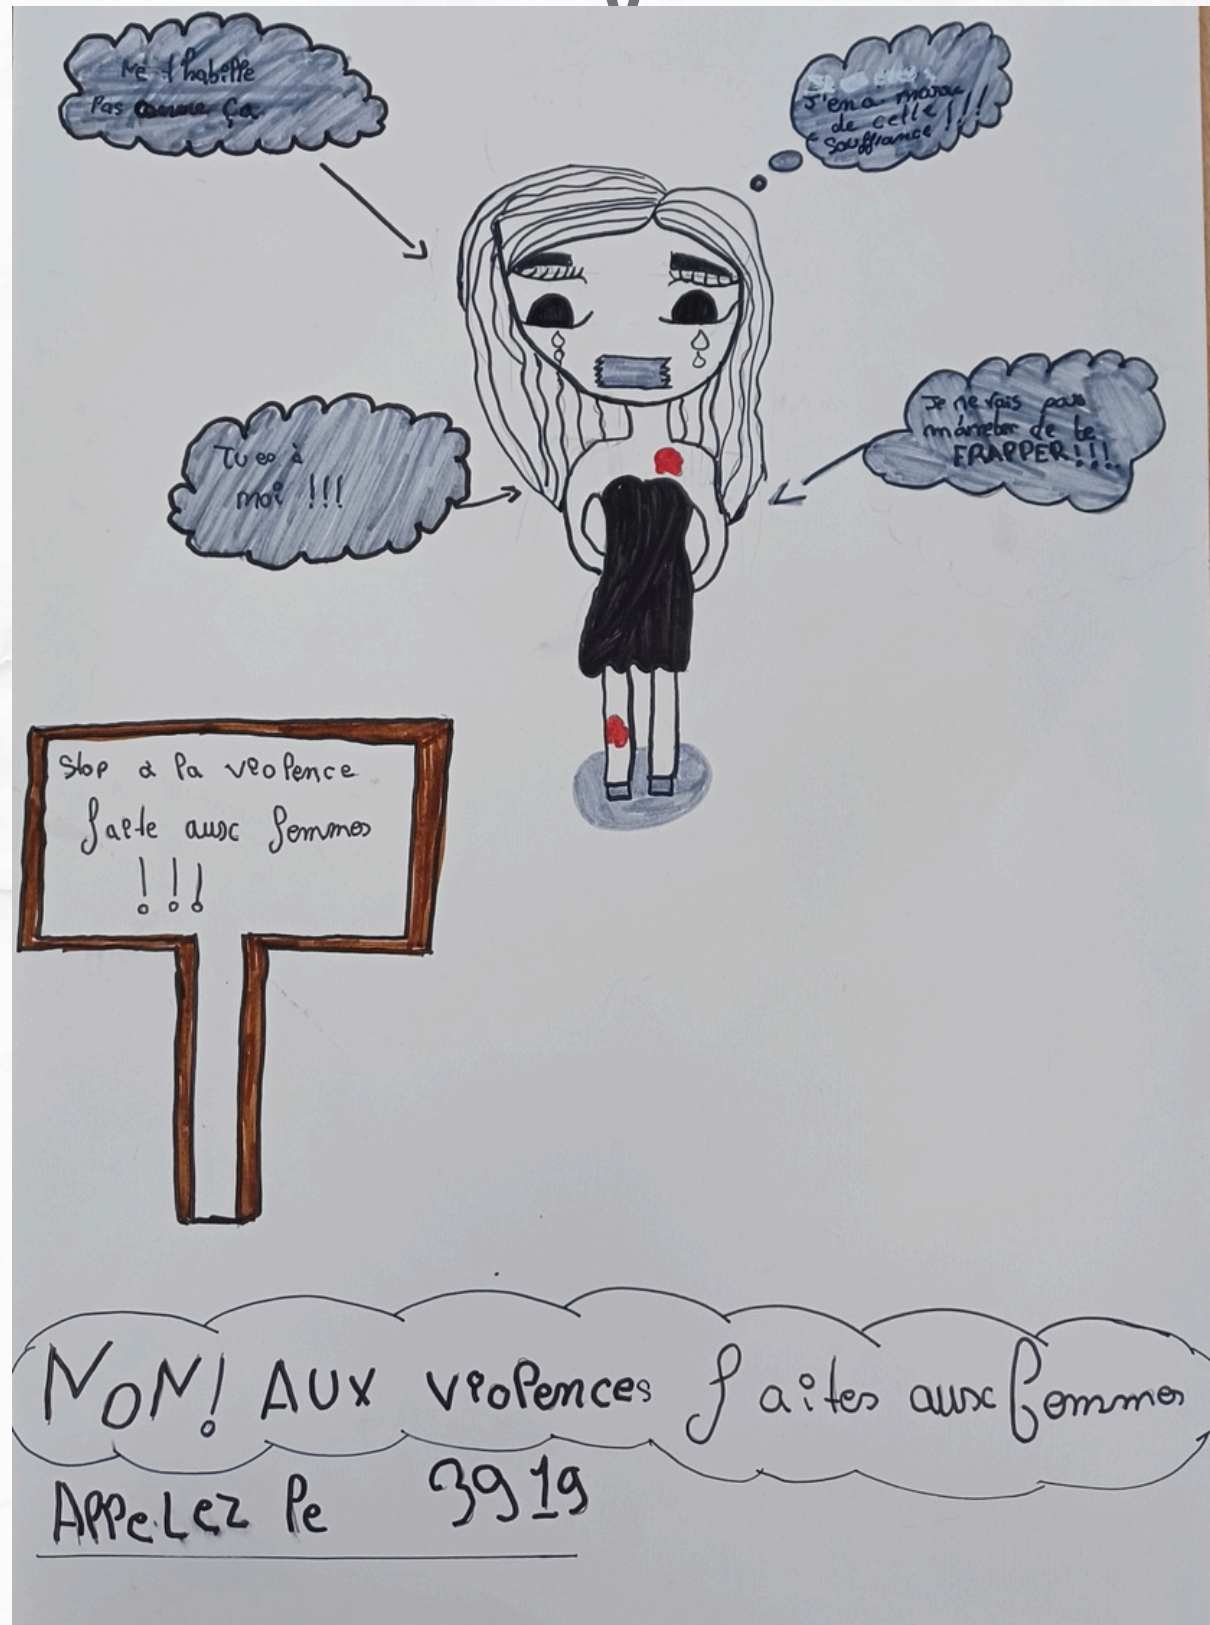 Ne t'habille
Pas comme ça
J'en a marre
de cette
souffrance !!!
Tu es à
moi !!!
Je ne vais pas
m'arreter de te
FRAPPER!!!
Stop a la violence
faite aux femmes
!!!
NON! AUX violences faites aux femmes
APPELEZ le 3919